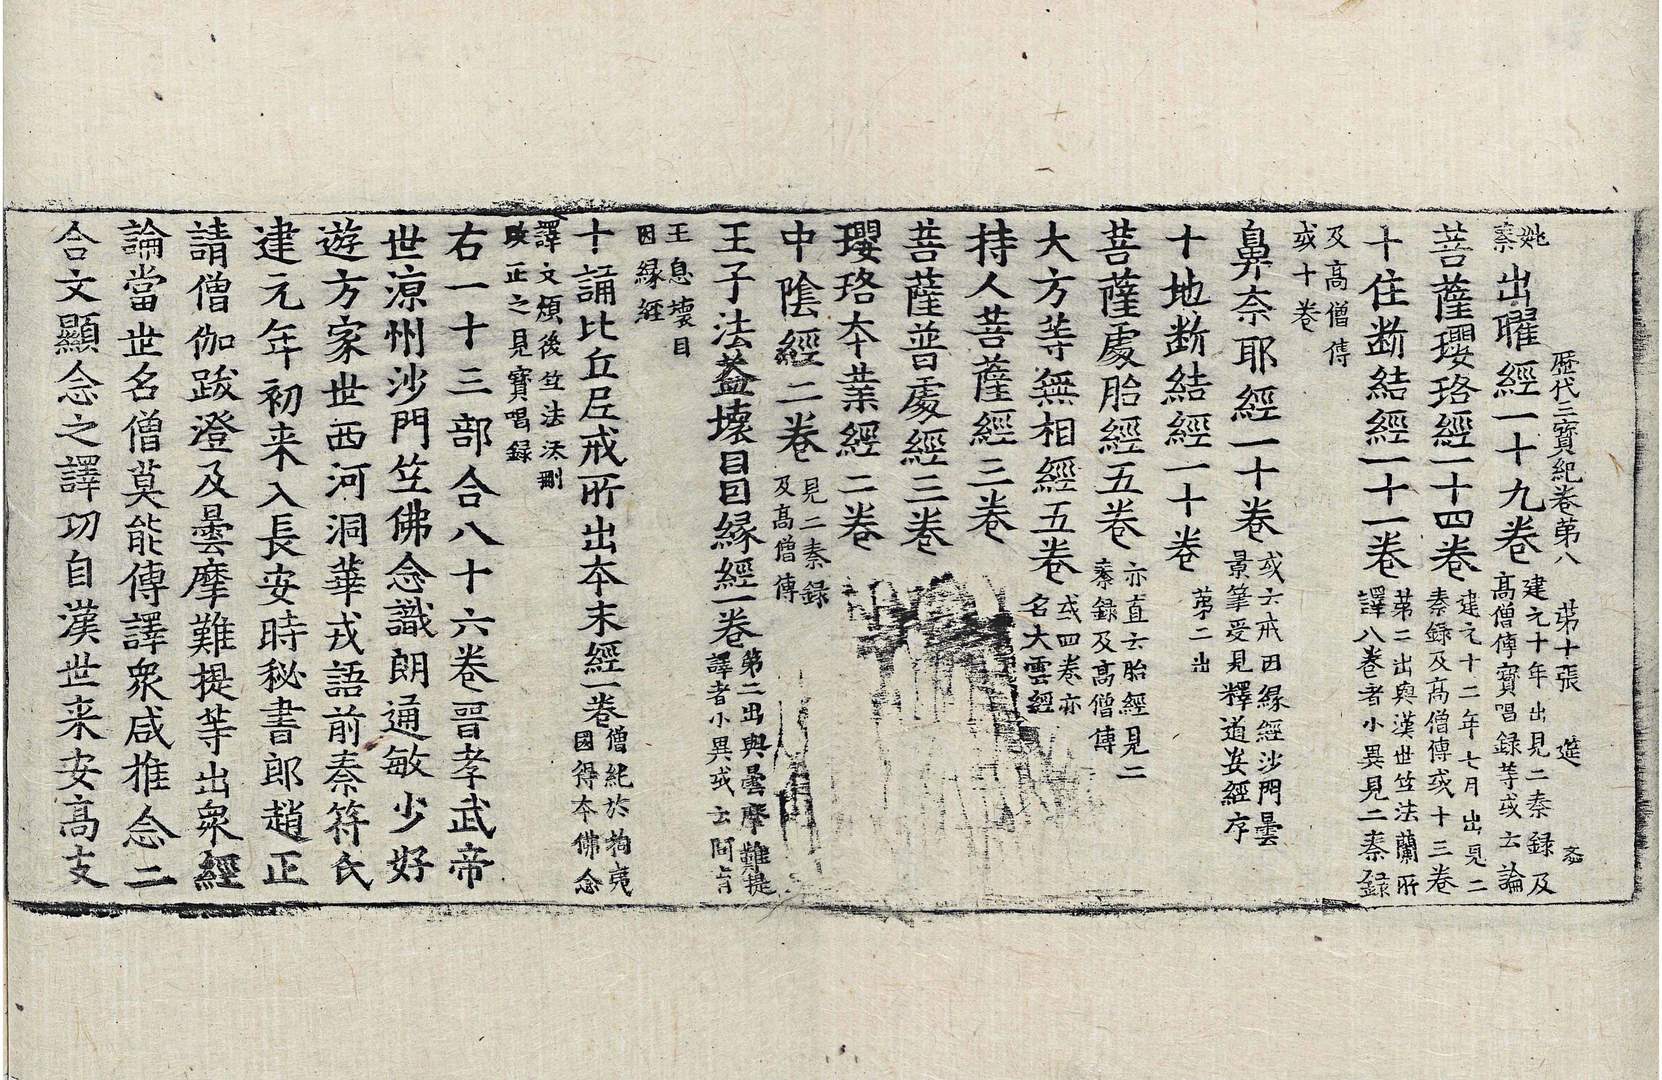 歷代三寶紀卷第八 第十張 筵
姚秦 出曜經一十九卷 建元十年出見二秦錄及高僧傳寶唱録等或云論
菩薩瓔珞經一十四卷 建元十二年七月出見二秦録及高僧傳或十三卷
十住断結經一十一卷 第二出與漢世竺法蘭所譯八卷者小異見二秦録
及高僧傳或十卷
鼻奈耶經一十卷 或云戒因縁經沙門曇景筆受見釋道安經序
十地断結經一十卷 第二出
菩薩處胎經五卷 亦直云胎經見二秦録及高僧傳
大方等無相經五卷 或四卷亦名大雲經
持人菩薩經三卷
菩薩普處經三卷
瓔珞本業經二卷
中陰經二卷 見二秦録及高僧傳
王子法益壞目因縁經一卷 第二出與曇摩難提譯者小異或云阿育
王息壞目因縁經
十誦比丘尼戒所出本末經一卷 僧純於拘夷國得本佛念
譯文煩後竺法汰刪改正之見寶唱録
右一十三部合八十六卷晋孝武帝
世涼州沙門竺佛念識朗通敏少好
遊方家世西河洞華戎語前秦符氏
建元年初来入長安時秘書郎趙正
請僧伽跋澄及曇摩難提等出衆經
論當世名僧莫能傳譯衆咸推念二
含文顯念之譯功自漢世来安高支